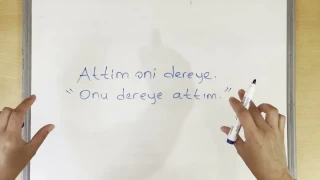 Attim əni dereye.
"Onu dereye attım."